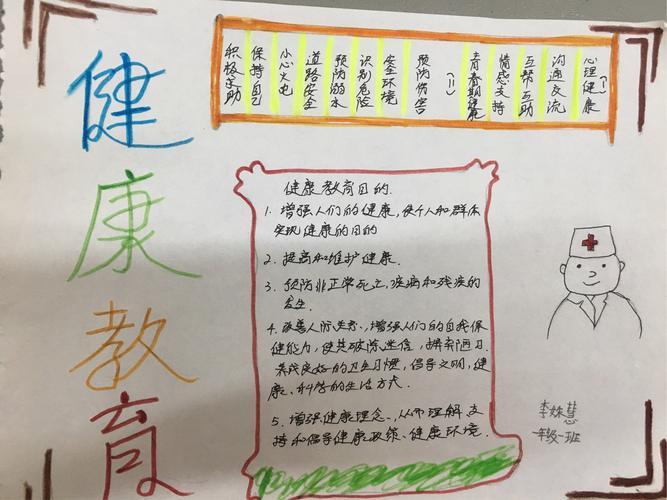 健
康
教
育
(一)
心理健康
沟通交流
互帮互助
情感支持
青春期健康
(二)
预防伤害
安全环境
识别危险
预防溺水
道路安全
小心火电
保持自己
积极求助
健康教育目的.
1. 增强人们的健康，使个人和群体
实现健康的目的
2. 提高和维护健康.
3. 预防非正常死亡，疾病和残疾的
发生.
4. 改善人际关系、增强人们的自我保
健能力，使其破除迷信，摒弃陋习.
养成良好的卫生习惯，倡导文明，健
康、科学的生活方式.
5. 增强健康理念、从而理解、支
持和倡导健康政策、健康环境.
李姝慧
一年级一班